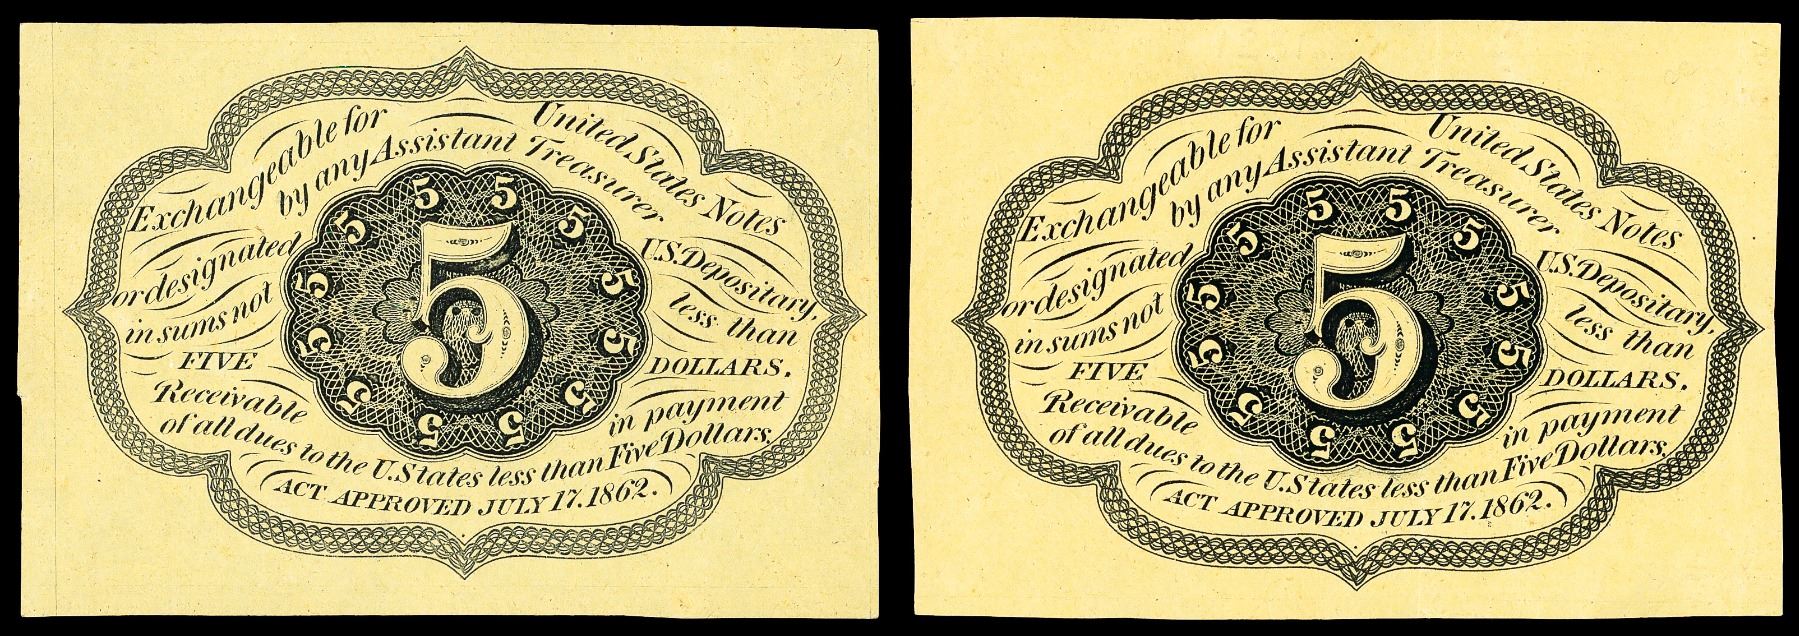 Exchangeable for United States Notes
by any Assistant Treasurer
or designated U.S. Depositary,
in sums not less than
FIVE DOLLARS.
Receivable in payment
of all dues to the U. States less than Five Dollars.
ACT APPROVED JULY 17. 1862.
5
5
5
5
5
5
5
5
5
5
5
5
5
Exchangeable for United States Notes
by any Assistant Treasurer
or designated U.S. Depositary,
in sums not less than
FIVE DOLLARS.
Receivable in payment
of all dues to the U. States less than Five Dollars.
ACT APPROVED JULY 17. 1862.
5
5
5
5
5
5
5
5
5
5
5
5
5